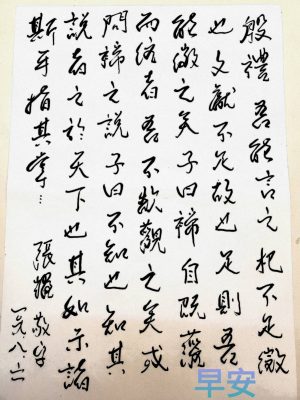 殷禮吾能言之杞不足徵
也文獻不足故也足則吾
能徵之矣子曰禘自既灌
而往者吾不欲觀之矣或
問禘之說子曰不知也知其
說者之於天下也其如示諸
斯乎指其掌…
張耀敬字
早安